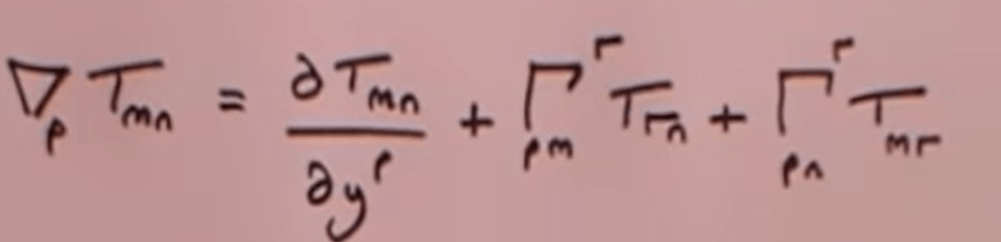 ∇_p T_{mn} = \frac{∂T_{mn}}{∂y^p} + Γ^r_{pm} T_{rn} + Γ^r_{pn} T_{mr}